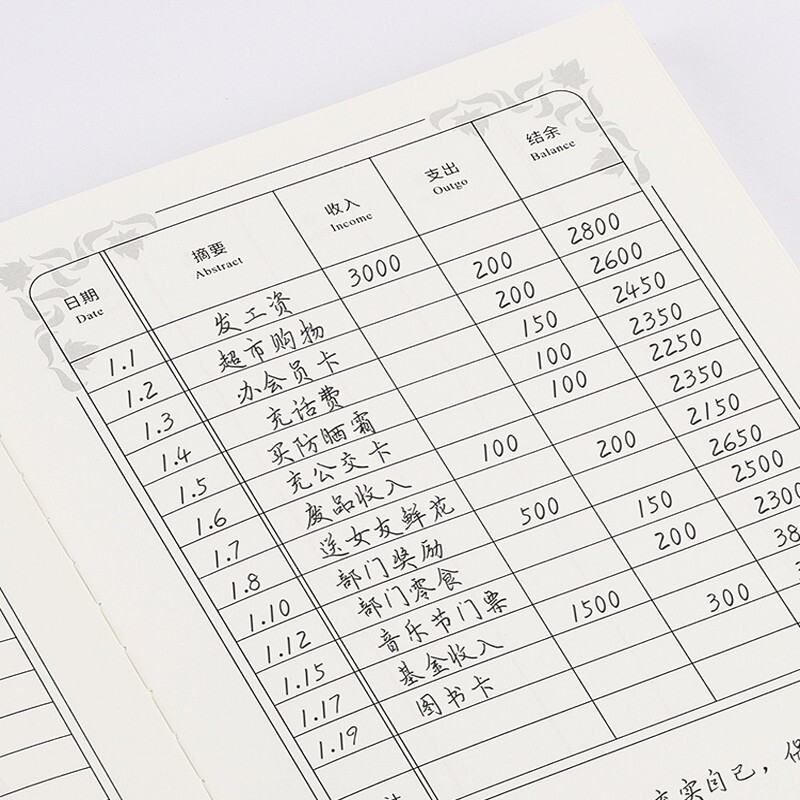 日期 摘要 收入 支出 结余
Date Abstract Income Outgo Balance
1.1 发工资 3000
1.2 超市购物 200 2800
1.3 办会员卡 200 2600
1.4 充话费 150 2450
1.5 买防晒霜 100 2350
1.6 充公交卡 100 2250
1.7 废品收入 100 2350
1.8 送女友鲜花 200 2150
1.10 部门奖励 500 2650
1.12 部门零食 150 2500
1.15 音乐节门票 200 2300
1.17 基金收入 1500 38
1.19 图书卡 300
实自己，